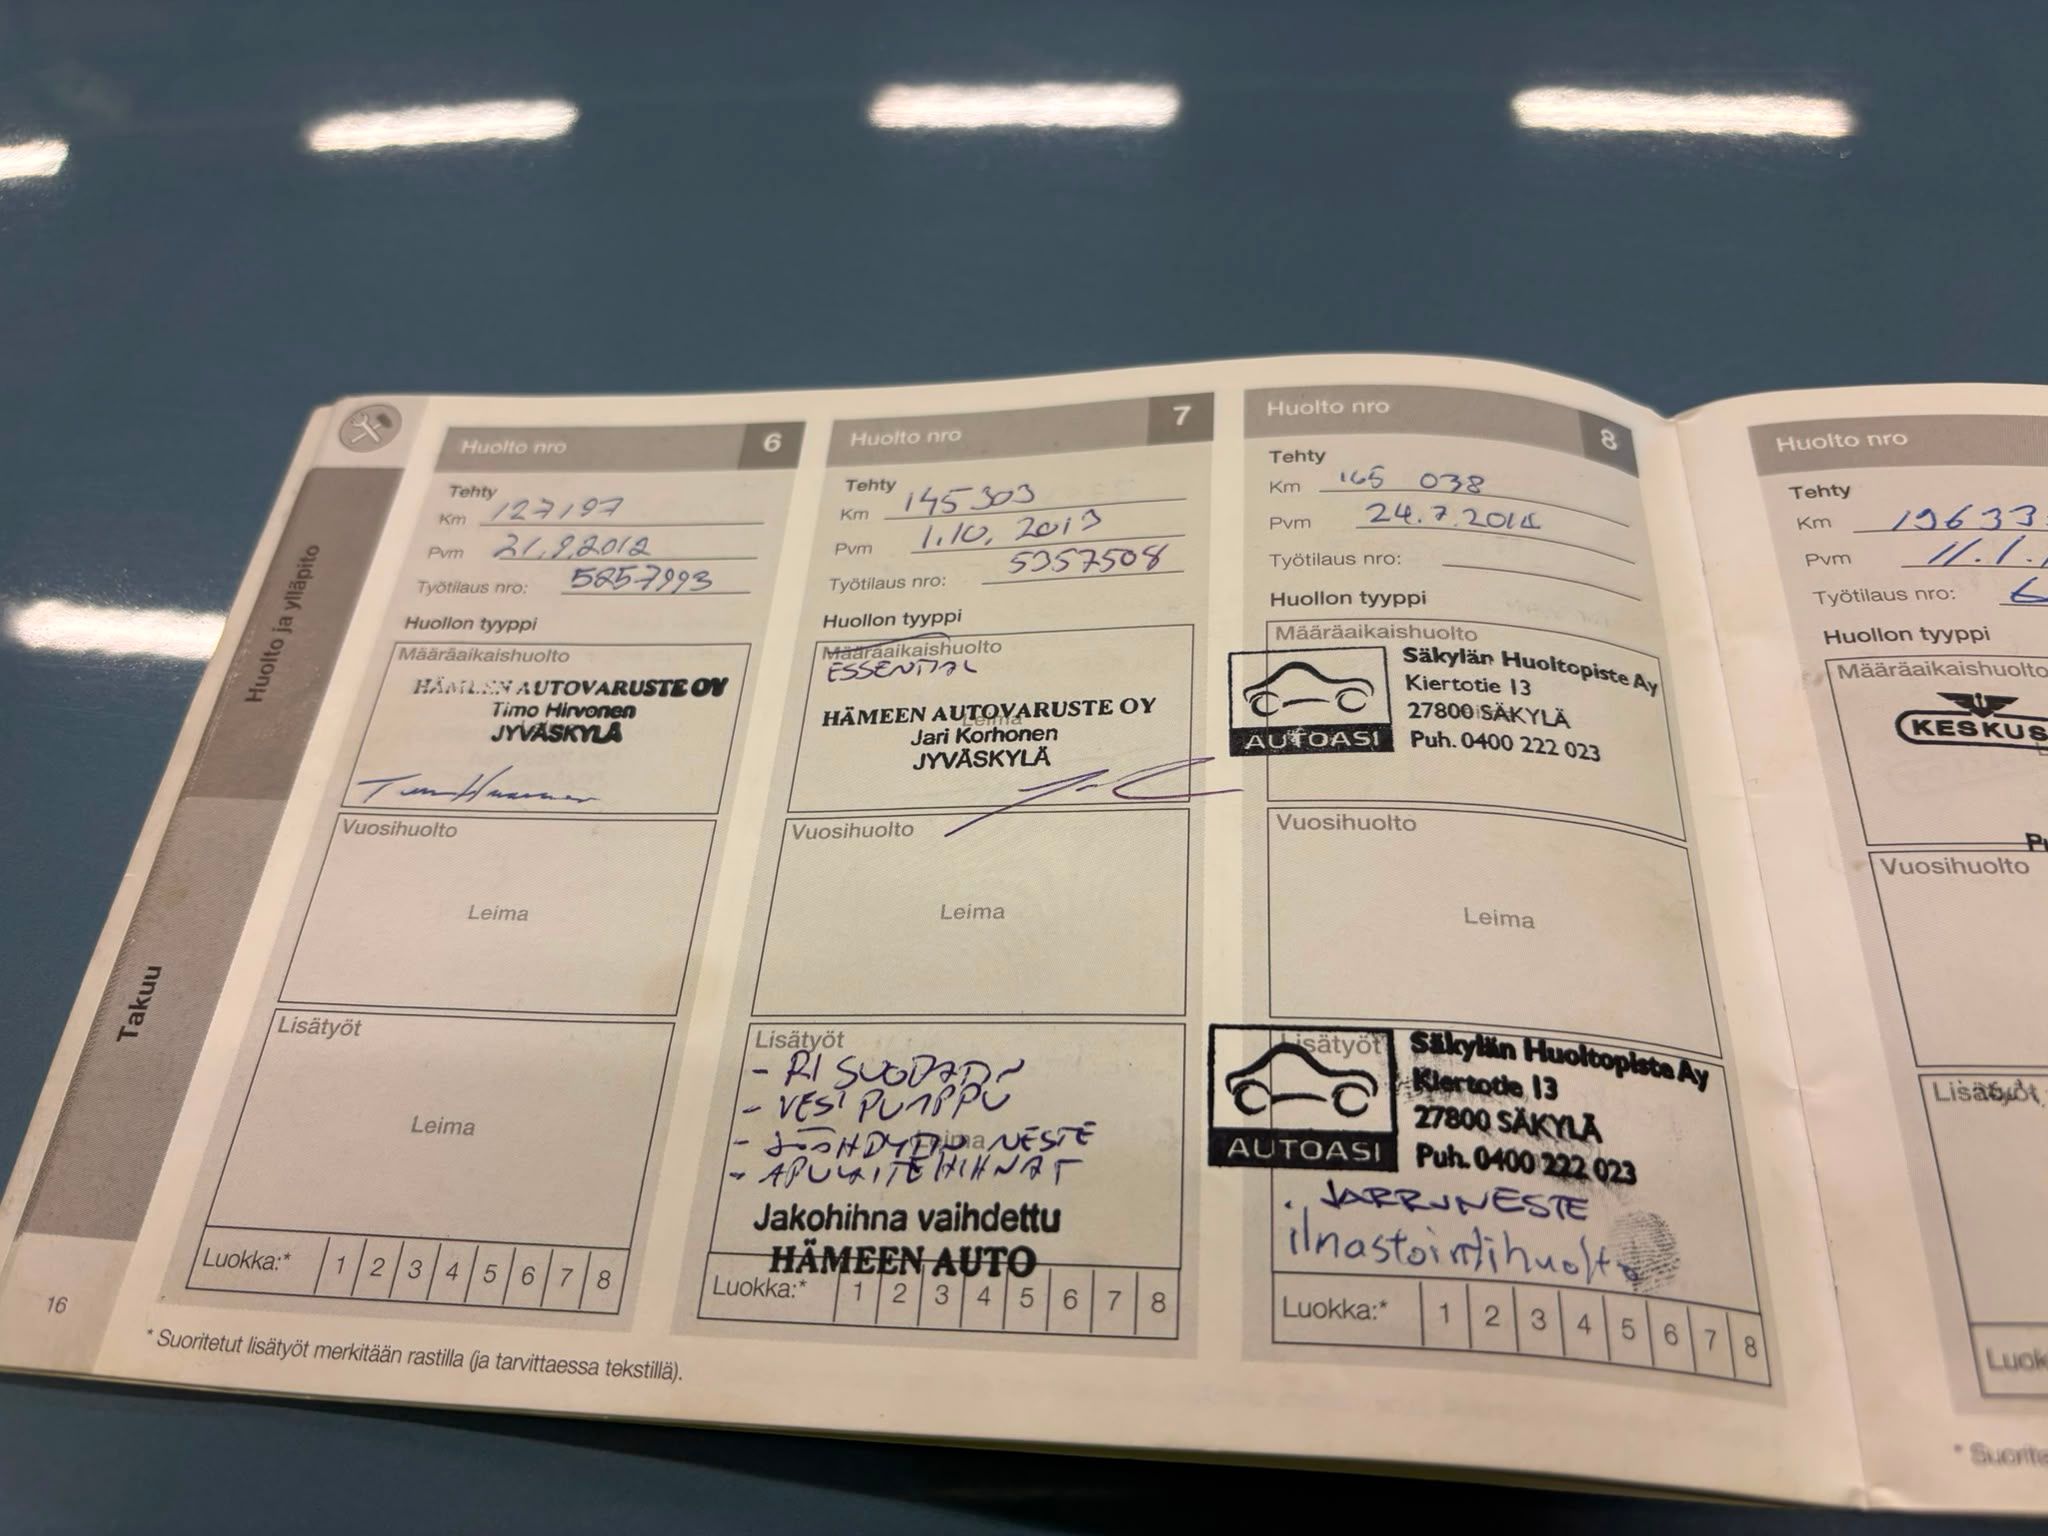 Huolto ja ylläpito
Takuu
16
Huolto nro 6
Tehty
Km 127197
Pvm 21.9.2012
Työtilaus nro: 5257993
Huollon tyyppi
Määräaikaishuolto
HÄMEEN AUTOVARUSTE OY
Timo Hirvonen
JYVÄSKYLÄ
Vuosihuolto
Leima
Lisätyöt
Leima
Luokka:* 1 2 3 4 5 6 7 8
Huolto nro 7
Tehty
Km 145303
Pvm 1.10. 2013
Työtilaus nro: 5357508
Huollon tyyppi
Määräaikaishuolto
ESSENTIAL
Leima
HÄMEEN AUTOVARUSTE OY
Jari Korhonen
JYVÄSKYLÄ
Vuosihuolto
Leima
Lisätyöt
- RI SUODATIN
- VESIPUMPPU
- JÄÄHDYTIN NESTE
- APULAITEHIHNAT
Leima
Jakohihna vaihdettu
HÄMEEN AUTO
Luokka:* 1 2 3 4 5 6 7 8
Huolto nro 8
Tehty
Km 165 038
Pvm 24.7.2014
Työtilaus nro:
Huollon tyyppi
Määräaikaishuolto
AUTOASI
Säkylän Huoltopiste Ay
Kiertotie 13
27800 SÄKYLÄ
Puh. 0400 222 023
Vuosihuolto
Leima
Lisätyöt
AUTOASI
Säkylän Huoltopiste Ay
Kiertotie 13
27800 SÄKYLÄ
Puh. 0400 222 023
. JARRUNESTE
ilmastointihuolto
Luokka:* 1 2 3 4 5 6 7 8
* Suoritetut lisätyöt merkitään rastilla (ja tarvittaessa tekstillä).
Huolto nro
Tehty
Km 19633
Pvm 11.1.
Työtilaus nro: 6
Huollon tyyppi
Määräaikaishuolto
KESKUS
Vuosihuolto
Lisätyöt
Luok
* Suorite